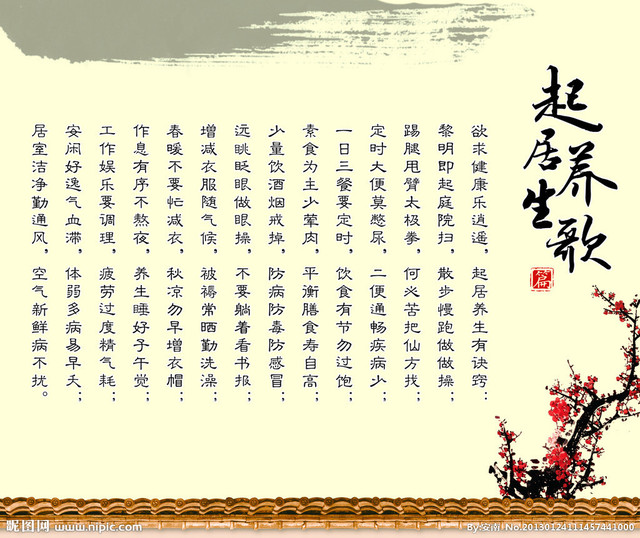 起居养生歌
篇
欲求健康乐逍遥，起居养生有诀窍；
黎明即起庭院扫，散步慢跑做做操；
踢腿甩臂太极拳，何必苦把仙方找；
定时大便莫憋尿，二便通畅疾病少；
一日三餐要定时，饮食有节勿过饱；
素食为主少荤肉，平衡膳食寿自高；
少量饮酒烟戒掉，防病防毒防感冒；
远眺眨眼做眼操，不要躺着看书报；
增减衣服随气候，被褥常晒勤洗澡；
春暖不要忙减衣，秋凉勿早增衣帽；
作息有序不熬夜，养生睡好子午觉；
工作娱乐要调理，疲劳过度精气耗；
安闲好逸气血滞，体弱多病易早夭；
居室洁净勤通风，空气新鲜病不扰。
昵图网 www.nipic.com
By:安南 No.20130124111457441000